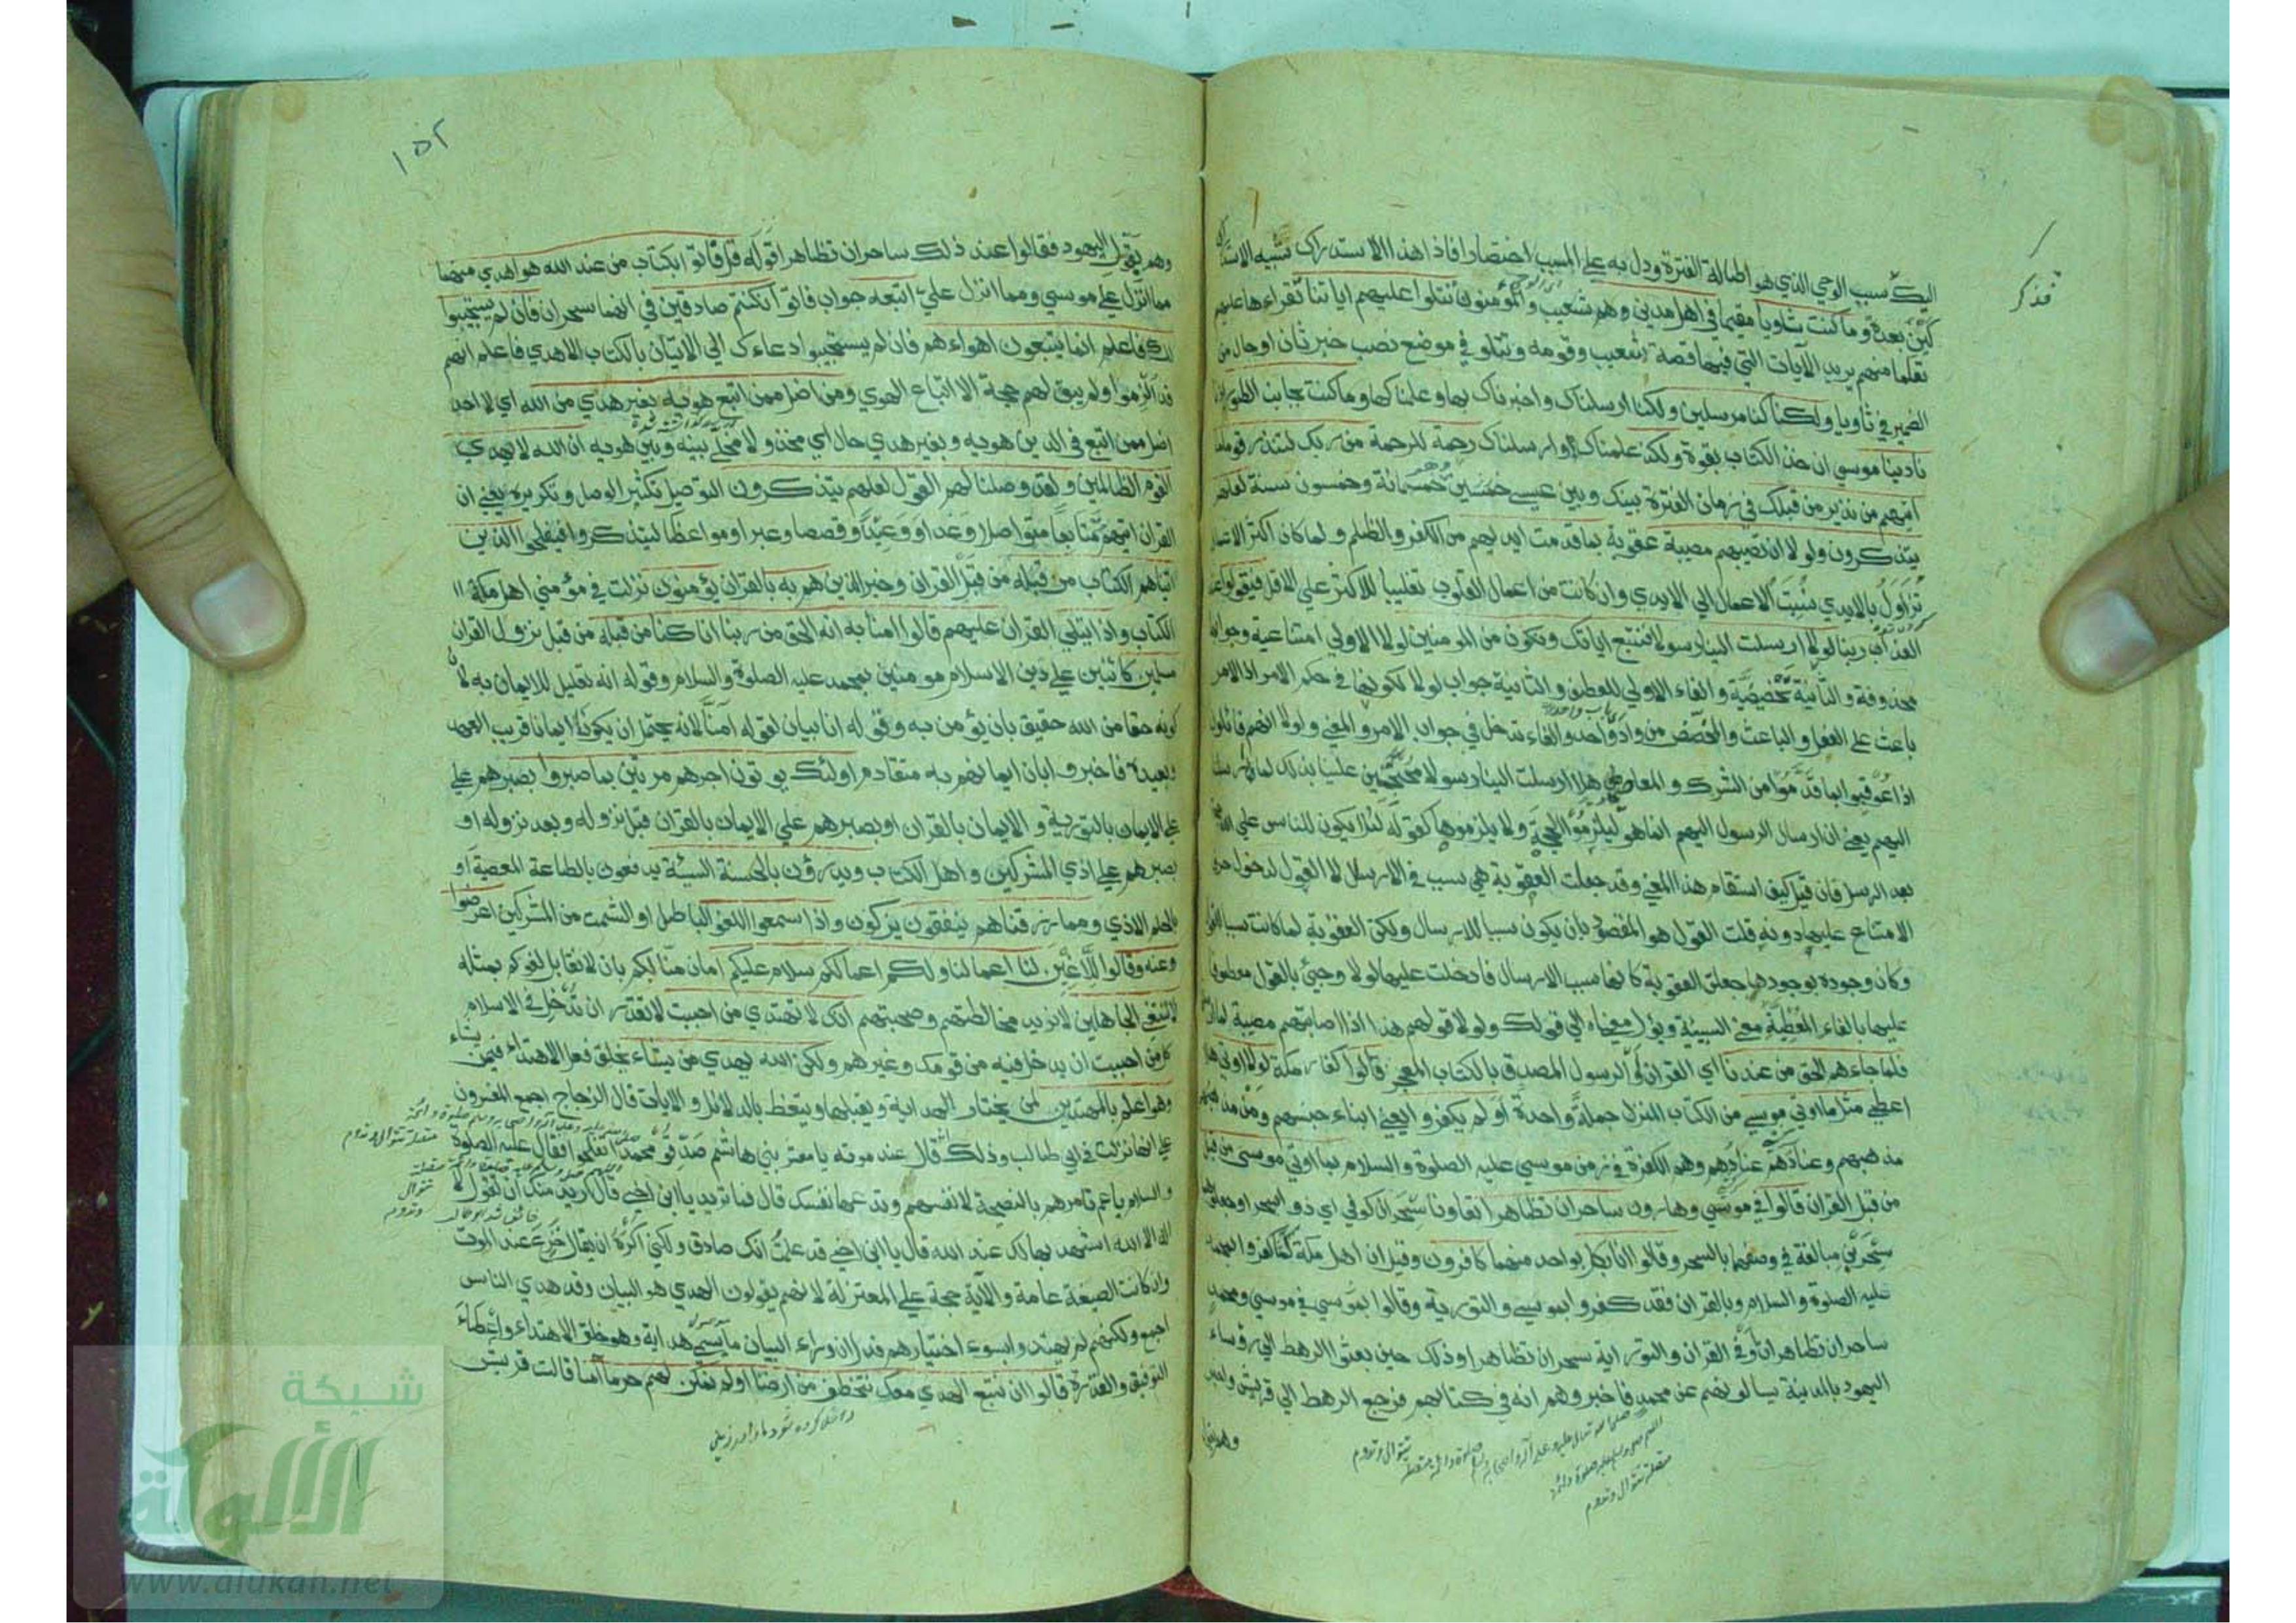 اليك سبب الوحي الذي هو اطالة الفترة ودل به على المسبب اختصارا فاذا هذا الاستدراك شبيه الاستدراكين
بعده وما كنت ثاويا مقيما في اهل مدين وهم شعيب والمؤمنون تتلوا عليهم اياتنا تقراءها عليهم
تعلما منهم يريد الآيات التي فيها قصة شعيب وقومه وتتلو في موضع نصب خبر ثان او حال من
الضمير في ثاويا ولكنا كنا مرسلين ولكنا ارسلناك واخبرناك بها وعلمناكها وما كنت بجانب الطور اذ
نادينا موسي ان خذ الكتاب بقوة ولكن علمناك وارسلناك رحمة للرحمة من ربك لتنذر قوما ما
اتيهم من نذير من قبلك في زمان الفترة بينك وبين عيسي خمسمائة وخمسون سنة لعلهم
يتذكرون ولولا ان تصيبهم مصيبة عقوبة بما قدمت ايديهم من الكفر والظلم ولما كان اكثر الاعمال
تزاول بالايدي نسبت الاعمال الي الايدي وان كانت من اعمال القلوب تغليبا للاكثر علي الاقل فيقولوا عند
العذاب ربنا لولا ارسلت الينا رسولا فنتبع اياتك ونكون من المومنين لولا الاولي امتناعية وجوابها
محذوفة والثانية تحضيضية والفاء الاولي للعطف والثانية جواب لولا لكونها في حكم الامر اذ الامر
باعث علي الفعل والباعث والمحضض من واد واحد والفاء تدخل في جواب الامر والمعني ولولا انهم قائلون
اذا عوقبوا بما قدموا من الشرك والمعاصي هلا ارسلت الينا رسولا محتجين علينا بذلك لما ارسلنا
اليهم يعني ان ارسال الرسول اليهم انما هو ليلزموا الحجة ولا يلزموها كقوله لئلا يكون للناس علي الله حجة
بعد الرسل فان قيل كيف استقام هذا المعني وقد جعلت العقوبة هي سبب في الارسال لا القول لدخول حرف
الامتناع عليها دونه قلت القول هو المقصود بان يكون سببا للارسال ولكن العقوبة لما كانت سببا للقول
وكان وجوده بوجودها جعلت العقوبة كانها سبب الارسال فادخلت عليها لولا وجئ بالقول معطوفا
عليها بالفاء المعطية معني السببية ويؤل معناه الي قولك ولولا قولهم هذا اذا اصابتهم مصيبة لما ارسلنا
فلما جاءهم الحق من عندنا اي القران او الرسول المصدق بالكتاب المعجز قالوا كفار مكة لولا اوتي هلا
اعطي مثل ما اوتي موسي من الكتاب المنزل جملة واحدة او لم يكفروا يعني ابناء جنسهم ومن مذهبهم
مذهبهم وعنادهم عنادهم وهم الكفرة في زمن موسي عليه الصلوة والسلام بما اوتي موسي من قبل
من قبل القران قالوا في موسي وهارون ساحران تظاهرا تعاونا سحران كوفي اي ذو السحر او جعلوهما
سحرين مبالغة في وصفهما بالسحر وقالوا انا بكل بواحد منهما كافرون وقيل ان اهل مكة كما كفروا بمحمد
عليه الصلوة والسلام وبالقران فقد كفروا بموسي والتورية وقالوا في موسي ومحمد
ساحران تظاهرا او في القران والتوراية سحران تظاهرا وذلك حين بعثوا الرهط الي رؤساء
اليهود بالمدينة يسالونهم عن محمد فاخبروهم انه في كتابهم فرجع الرهط الي قريش واخبر
فذكر
١٥٢
وهم بقول اليهود فقالوا عند ذلك ساحران تظاهرا قوله قل فاتوا بكتاب من عند الله هو اهدي منهما
مما انزل علي موسي ومما انزل علي اتبعه جواب فاتوا ان كنتم صادقين في انهما سحران فان لم يستجيبوا
لك فاعلم انما يتبعون اهواءهم فان لم يستجيبوا دعاءك الي الاتيان بالكتاب الاهدي فاعلم انهم
قد الزموا ولم يبق لهم حجة الا اتباع الهوي ومن اضل ممن اتبع هويه بغير هدي من الله اي لا احد
اضل ممن اتبع في الدين هويه وبغير هدي حال اي مخذولا مخلي بينه وبين هويه ان الله لا يهدي
القوم الظالمين ولقد وصلنا لهم القول لعلهم يتذكرون التوصيل تكثير الوصل وتكريره يعني ان
القران اتيهم متتابعا متواصلا وعدا ووعيدا وقصصا وعبرا ومواعظا ليتذكروا فيفلحوا الذين
اتيناهم الكتاب من قبله من قبل القران وخبر الذين هم به بالقران يؤمنون نزلت في مؤمني اهل مكة
الكتاب واذا يتلي القران عليهم قالوا امنا به انه الحق من ربنا انا كنا من قبله من قبل نزول القران
مسلمين كائنين علي دين الاسلام مومنين بمحمد عليه الصلوة والسلام وقوله انه تعليل للايمان به لان
كونه حقا من الله حقيق بان يؤمن به وقوله انا بيان لقوله امنا لانه يحتمل ان يكون ايمانا قريب العهد
وبعيده فاخبروا بان ايمانهم به متقادم اولئك يوتون اجرهم مرتين بما صبروا بصبرهم علي
علي الايمان بالتورية والايمان بالقران او بصبرهم علي الايمان بالقران قبل نزوله وبعد نزوله او
بصبرهم علي اذي المشركين واهل الكتاب ويدرؤن بالحسنة السيئة يدفعون بالطاعة المعصية او
بالحلم الاذي ومما رزقناهم ينفقون يزكون واذا سمعوا اللغو الباطل او الشتم من المشركين اعرضوا
عنه وقالوا للاغين لنا اعمالنا ولكم اعمالكم سلام عليكم امان منا لكم بان لا نقابل لغوكم بمثله
لا نبتغي الجاهلين لا نريد مخالطتهم وصحبتهم انك لا تهتدي من احببت لا تقدر ان تدخل في الاسلام
كل من احببت ان يدخل فيه من قومك وغيرهم ولكن الله يهدي من يشاء يخلق فعل الاهتداء فيمن يشاء
وهو اعلم بالمهتدين لمن يختار الهداية ويقبلها ويتعظ بالدلائل والايات قال الزجاج اجمع المفسرون
علي انها نزلت في ابي طالب وذلك قال عند موته يا معشر بني هاشم صدقوا محمدا تفلحوا فقال عليه الصلوة
والسلام يا عم تامرهم بالنصيحة لانفسهم وتدعها لنفسك قال فما تريد يا ابن اخي قال اريد منك ان تقول لا
اله الا الله اشهد بها لك عند الله قال يا ابن اخي قد علمت انك صادق ولكني اكره ان يقال جزع عند الموت
وان كانت الصيغة عامة والآية حجة علي المعتزلة لانهم يقولون الهدي هو البيان وقد هدي الناس
اجمع ولكنهم لم يهتدوا بسوء اختيارهم فدل ان وراء البيان ما يسمي هداية وهو خلق الاهتداء واعطاء
التوفيق والقدرة قالوا ان نتبع الهدي معك نتخطف من ارضنا اولم نمكن لهم حرما آمنا قالت قريش
شبكة
الألوكة
www.alukah.net